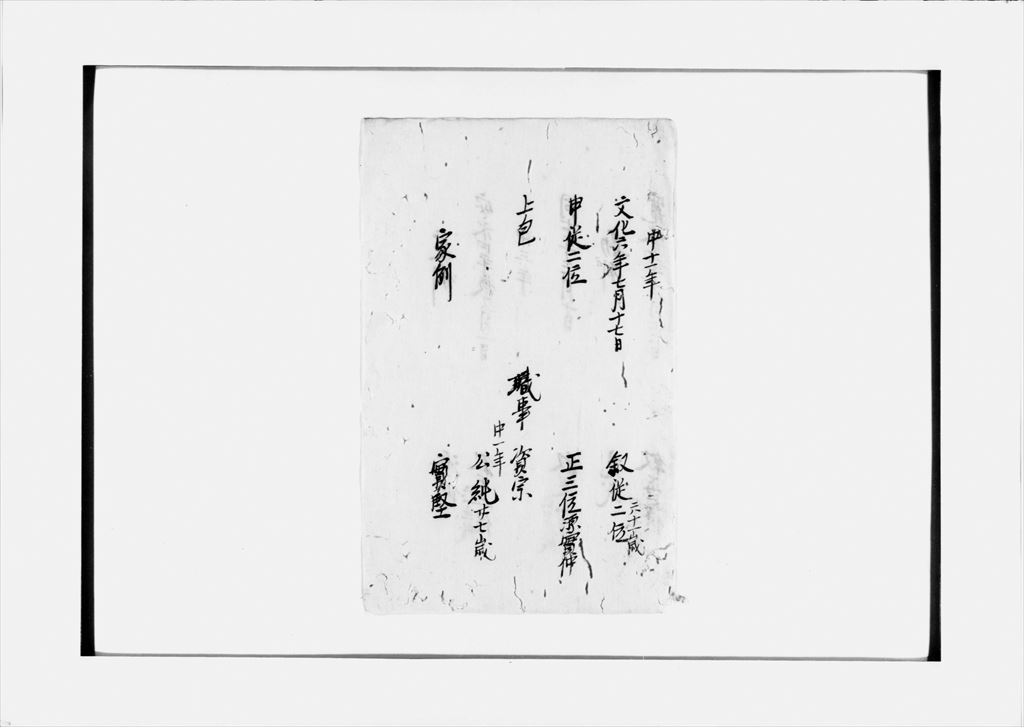 中十一年
文化六年七月十七日　叙従二位 六十一歳
申従二位　正三位源實仲
上包
職事　資宗
中一年
公純 廿七歳
家例　實堅